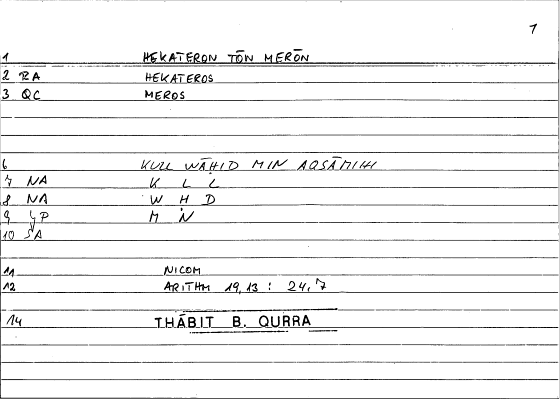 1
1 HEKATERON TŌN MERŌN
2 RA HEKATEROS
3 QC MEROS
6 KULL WĀHID MIN AQSĀMIHI
7 NA K L L
8 NA W H D
9 M N
10
11 NICOM
12 ARITHM 19,13 : 24,7
14 THĀBIT B. QURRA